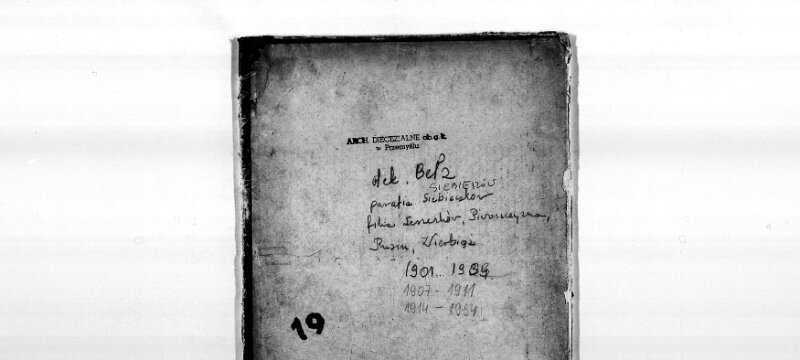 ARCH. DIECEZJALNE ob. g.k.
w Przemyślu
dek. Bełz
SIEBIECZÓW
parafia Siebieczów
filia Leszczków, Piwowszczyzna,
Rusin, Zwierbiąż
1901..
1907 - 1911
1914 -
19